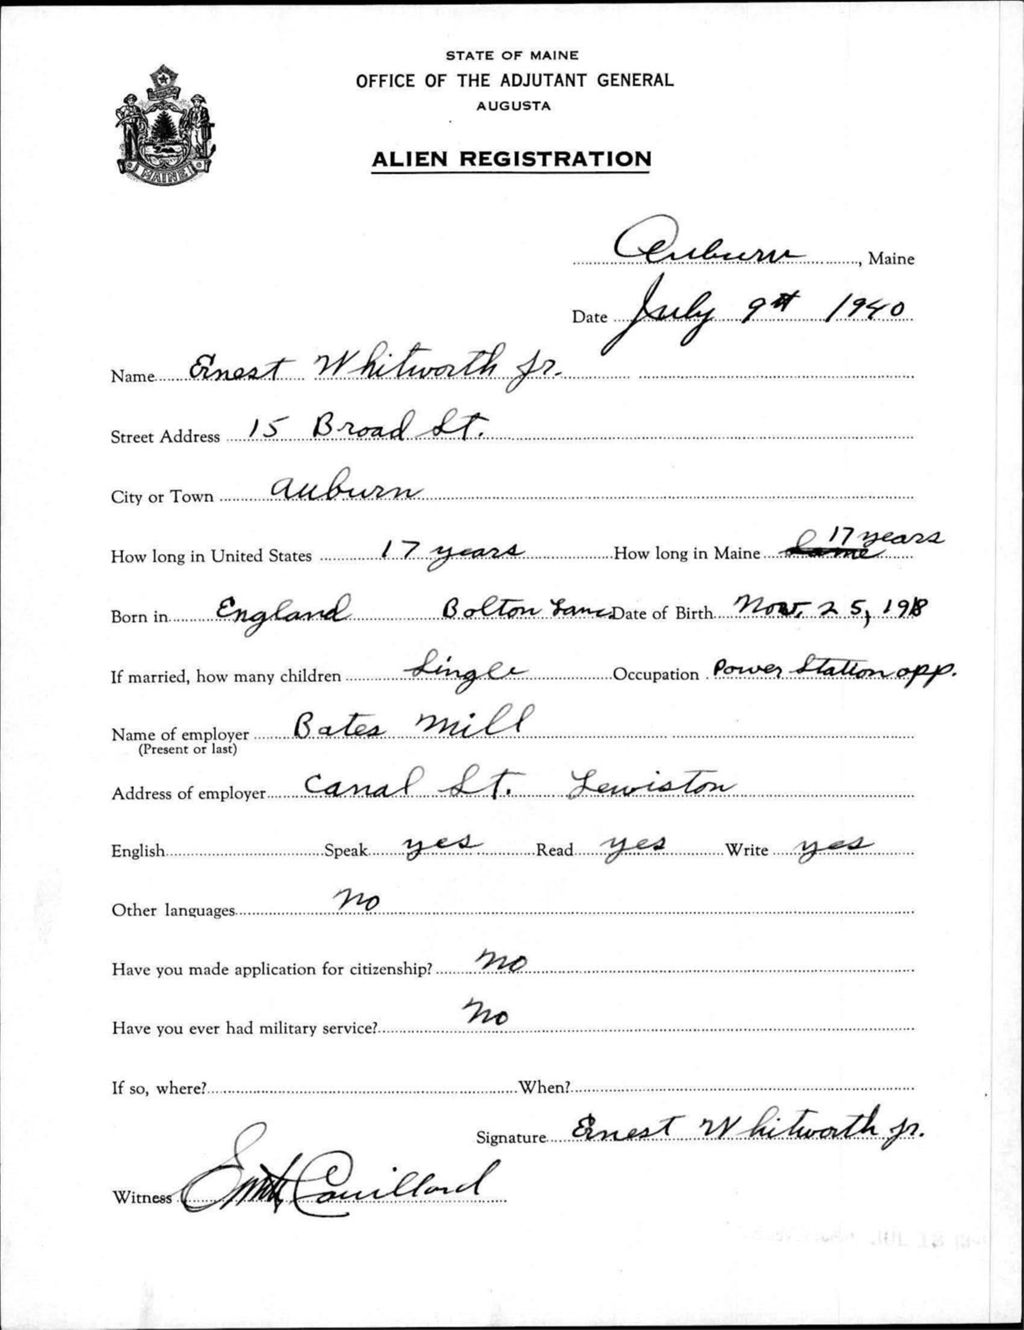 STATE OF MAINE
OFFICE OF THE ADJUTANT GENERAL
AUGUSTA
ALIEN REGISTRATION
MAINE
Auburn, Maine
Date July 9th 1940
Name Ernest Whitworth Jr.
Street Address 15 Broad St.
City or Town Auburn
How long in United States 17 years How long in Maine 17 years
Born in England Bolton Lanc Date of Birth Nov. 25, 1918
If married, how many children Single Occupation Power Station opp.
Name of employer Bates Mill
(Present or last)
Address of employer Canal St. Lewiston
English Speak yes Read yes Write yes
Other languages No
Have you made application for citizenship? No
Have you ever had military service? No
If so, where? When?
Signature Ernest Whitworth Jr.
Witness Couillard